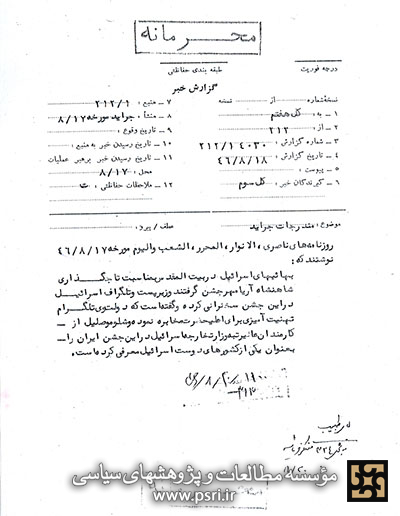 محرمانه
درجه فوریت
طبقه بندی حفاظتی
گزارش خبر
نسخهشماره از نسخه
۱ ــ به : کل هفتم
۲ ــ از : ۲۱۲
۳ ــ شماره گزارش : ۲۱۲/۱۴۰۳۰
۴ ــ تاریخ گزارش : ۴۶/۸/۱۸
۵ ــ پیوست :
۶ ــ گیرندگان خبر : کل سوم
۷ ــ منبع : ۲۱۲/۱
۸ ــ منشأ : جراید مورخه ۸/۱۷
۹ ــ تاریخ وقوع :
۱۰ ــ تاریخ رسیدن خبر به منبع :
۱۱ ــ تاریخ رسیدن خبر برهبر عملیات
محل : ۸/۱۷
۱۲ ــ ملاحظات حفاظتی :
موضوع : مندرجات جراید عطف / پیرو :
روزنامه های ناصری ، الانوار ، المحرر ، الشعب والیوم مورخه ۴۶/۸/۱۷
نوشتند که :
بهائیهای اسرائیل در بیت المقدس بمناسبت تاجگذاری
شاهنشاه آریامهر جشن گرفتند وزیر پست و تلگراف اسرائیل
در این جشن سخنرانی کرده و گفته است که دولت وی تلگرام
تهنیت آمیزی برای اعلیحضرت مخابره نموده و شلوموصلیل از ــ
کارمندان عالیرتبه وزارت خارجه اسرائیل در این جشن ایران را ــ
بعنوان یکی از کشورهای دوست اسرائیل معرفی کرده است .
مؤسسه مطالعات و پژوهشهای سیاسی
www.psri.ir